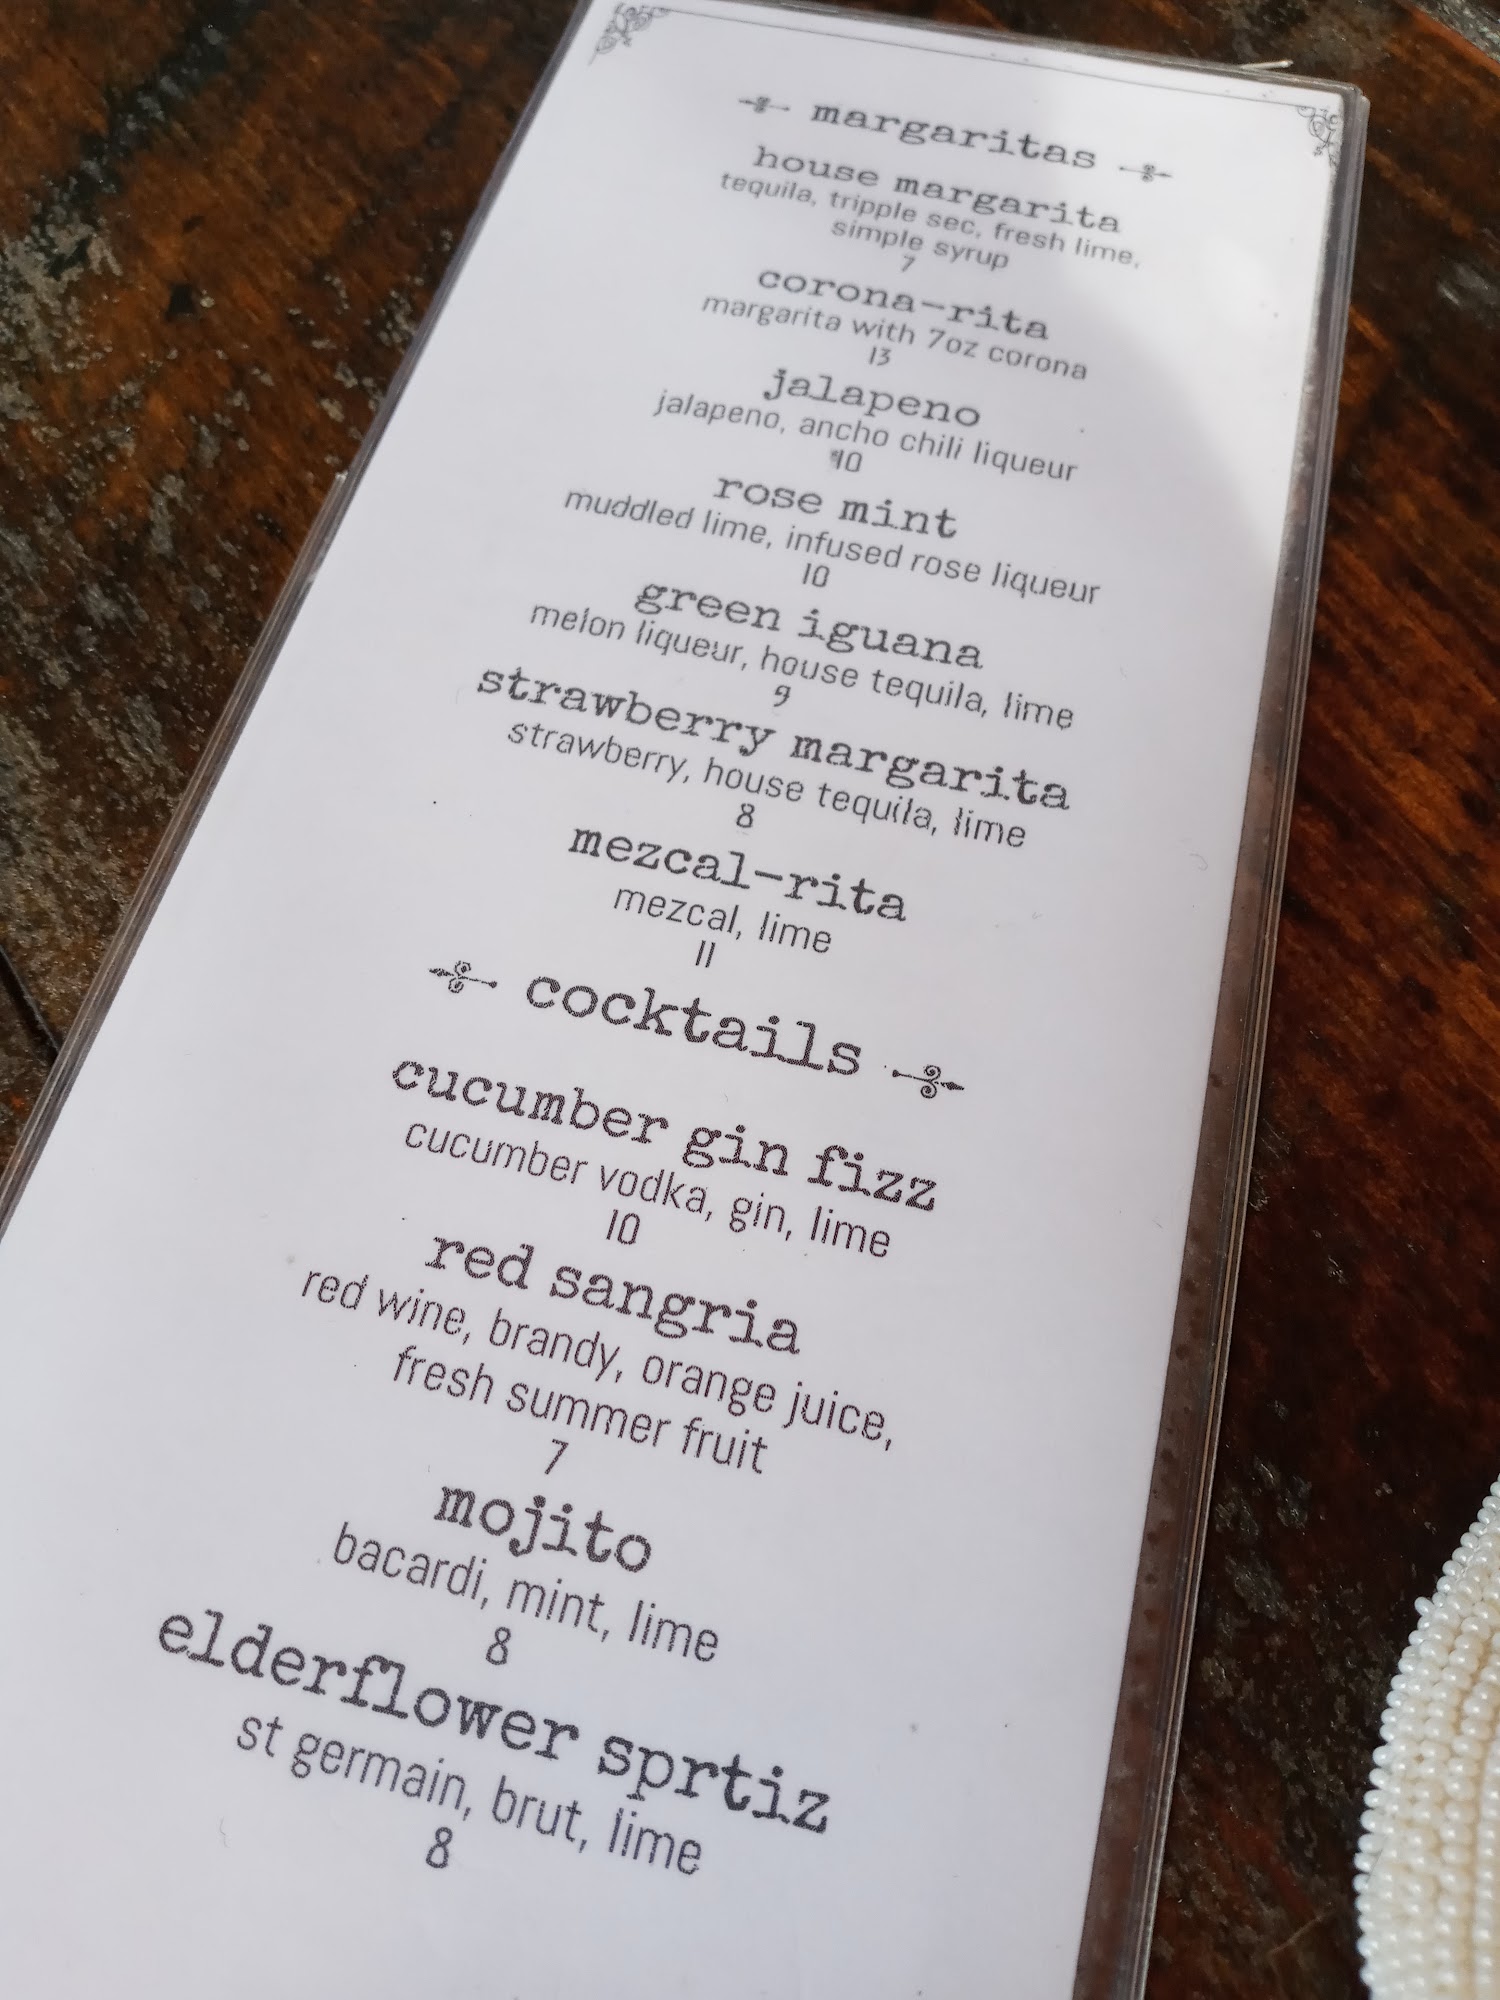 margaritas
house margarita
tequila, tripple sec, fresh lime,
simple syrup
7
corona-rita
margarita with 7oz corona
13
jalapeno
jalapeno, ancho chili liqueur
10
rose mint
muddled lime, infused rose liqueur
10
green iguana
melon liqueur, house tequila, lime
9
strawberry margarita
strawberry, house tequila, lime
8
mezcal-rita
mezcal, lime
11
cocktails
cucumber gin fizz
cucumber vodka, gin, lime
10
red sangria
red wine, brandy, orange juice,
fresh summer fruit
7
mojito
bacardi, mint, lime
8
elderflower sprtiz
st germain, brut, lime
8